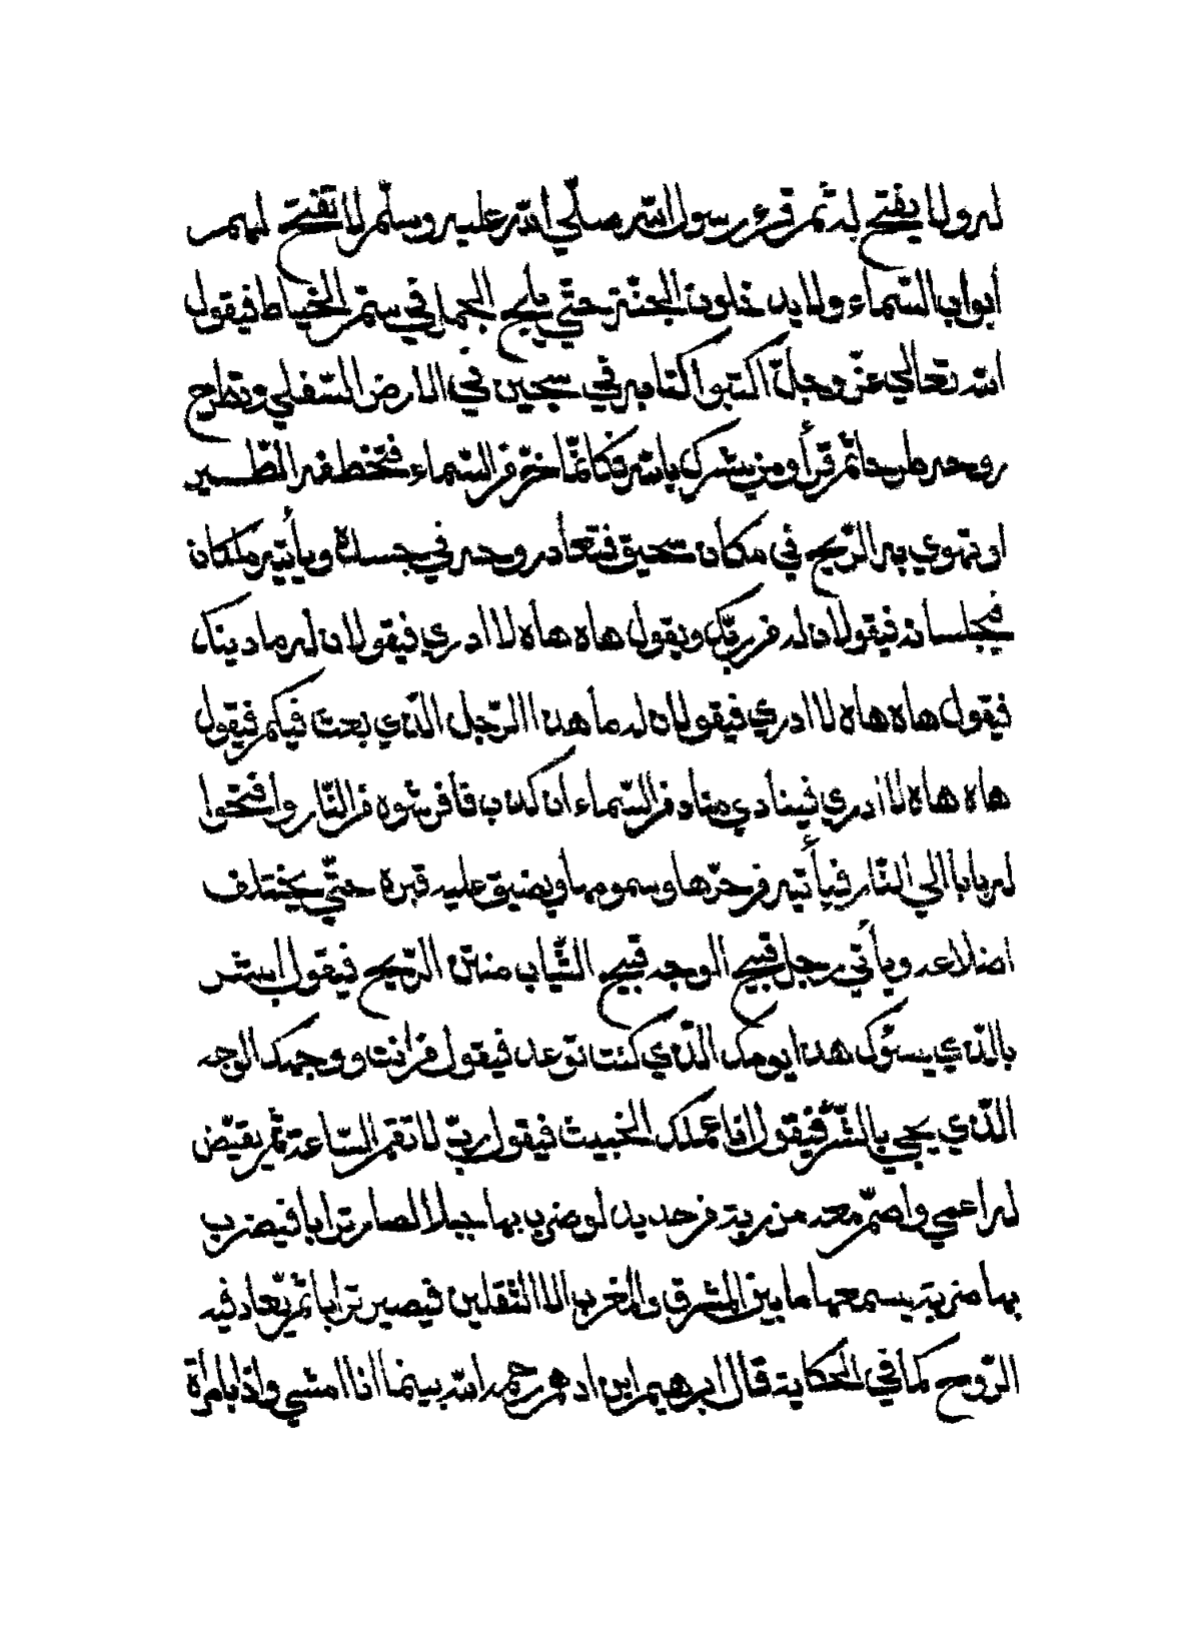 له ولا يفتح له ثم قرء رسول الله صلّي الله عليه وسلّم لا تفتح لهم
أبواب السّماء ولا يدخلون الجنّة حتّي يلج الجمل في سمّ الخياط فيقول
الله تعالي عزّ وجلّ اكتبوا كتابه في سجين في الارض السّفلي وتطرح
روحه طرحا ثمّ قرأ ومن يشرك بالله فكانّما خرّ من السّماء فتخطفه الطّير
او تهوي به الرّيح في مكان سحيق فتعاد روحه في جسده ويأتيه ملكان
فيجلسانه فيقولان له من ربّك ويقول هاه هاه لا ادري فيقولان له ما دينك
فيقول هاه هاه لا ادري فيقولان له ما هذا الرّجل الّذي بعث فيكم فيقول
هاه هاه لا ادري فينادي مناد من السّماء ان كذب فافرشوه من النّار وافتحوا
له بابا الي النّار فيأتيه من حرّها وسمومها ويضيق عليه قبره حتّي يختلف
اضلاعه ويأتي رجل قبيح الوجه قبيح الثّياب منتن الرّيح فيقول ابشر
بالّذي يسئوك هذا يومك الّذي كنت توعد فيقول من انت ووجهك الوجه
الّذي يجي بالشّرّ فيقول انا عملك الخبيث فيقول ربّ لا تقم السّاعة ثمّ يقيّض
له اعمي واصمّ معه مرزبة من حديد لو ضرب بها جبلا لصار ترابا فيضرب
بها ضربة يسمعها ما بين المشرق والمغرب الا الثقلين فيصير ترابا ثمّ يعاد فيه
الرّوح كما في الحكاية قال ابرهيم ابن ادهم رحمه الله بينما انا امشي واذا بامرأة